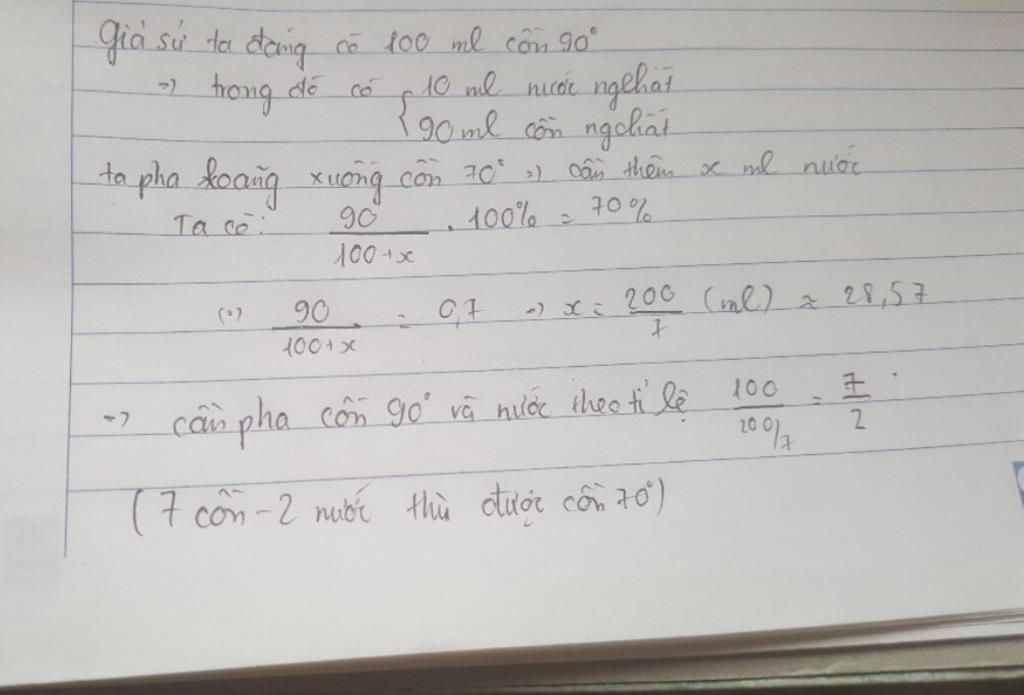 Giả sử ta đang có 100 ml cồn 90°
=) trong đó có { 10 ml nước ngchất
90 ml cồn ngchất
ta pha loãng xuống cồn 70° =) cần thêm x ml nước
Ta có: 90/(100+x) . 100% = 70%
(=) 90/(100+x) = 0,7 =) x = 200/7 (ml) ≈ 28,57
=) cần pha cồn 90° và nước theo tỉ lệ 100/(200/7) = 7/2.
(7 cồn - 2 nước thì được cồn 70°)